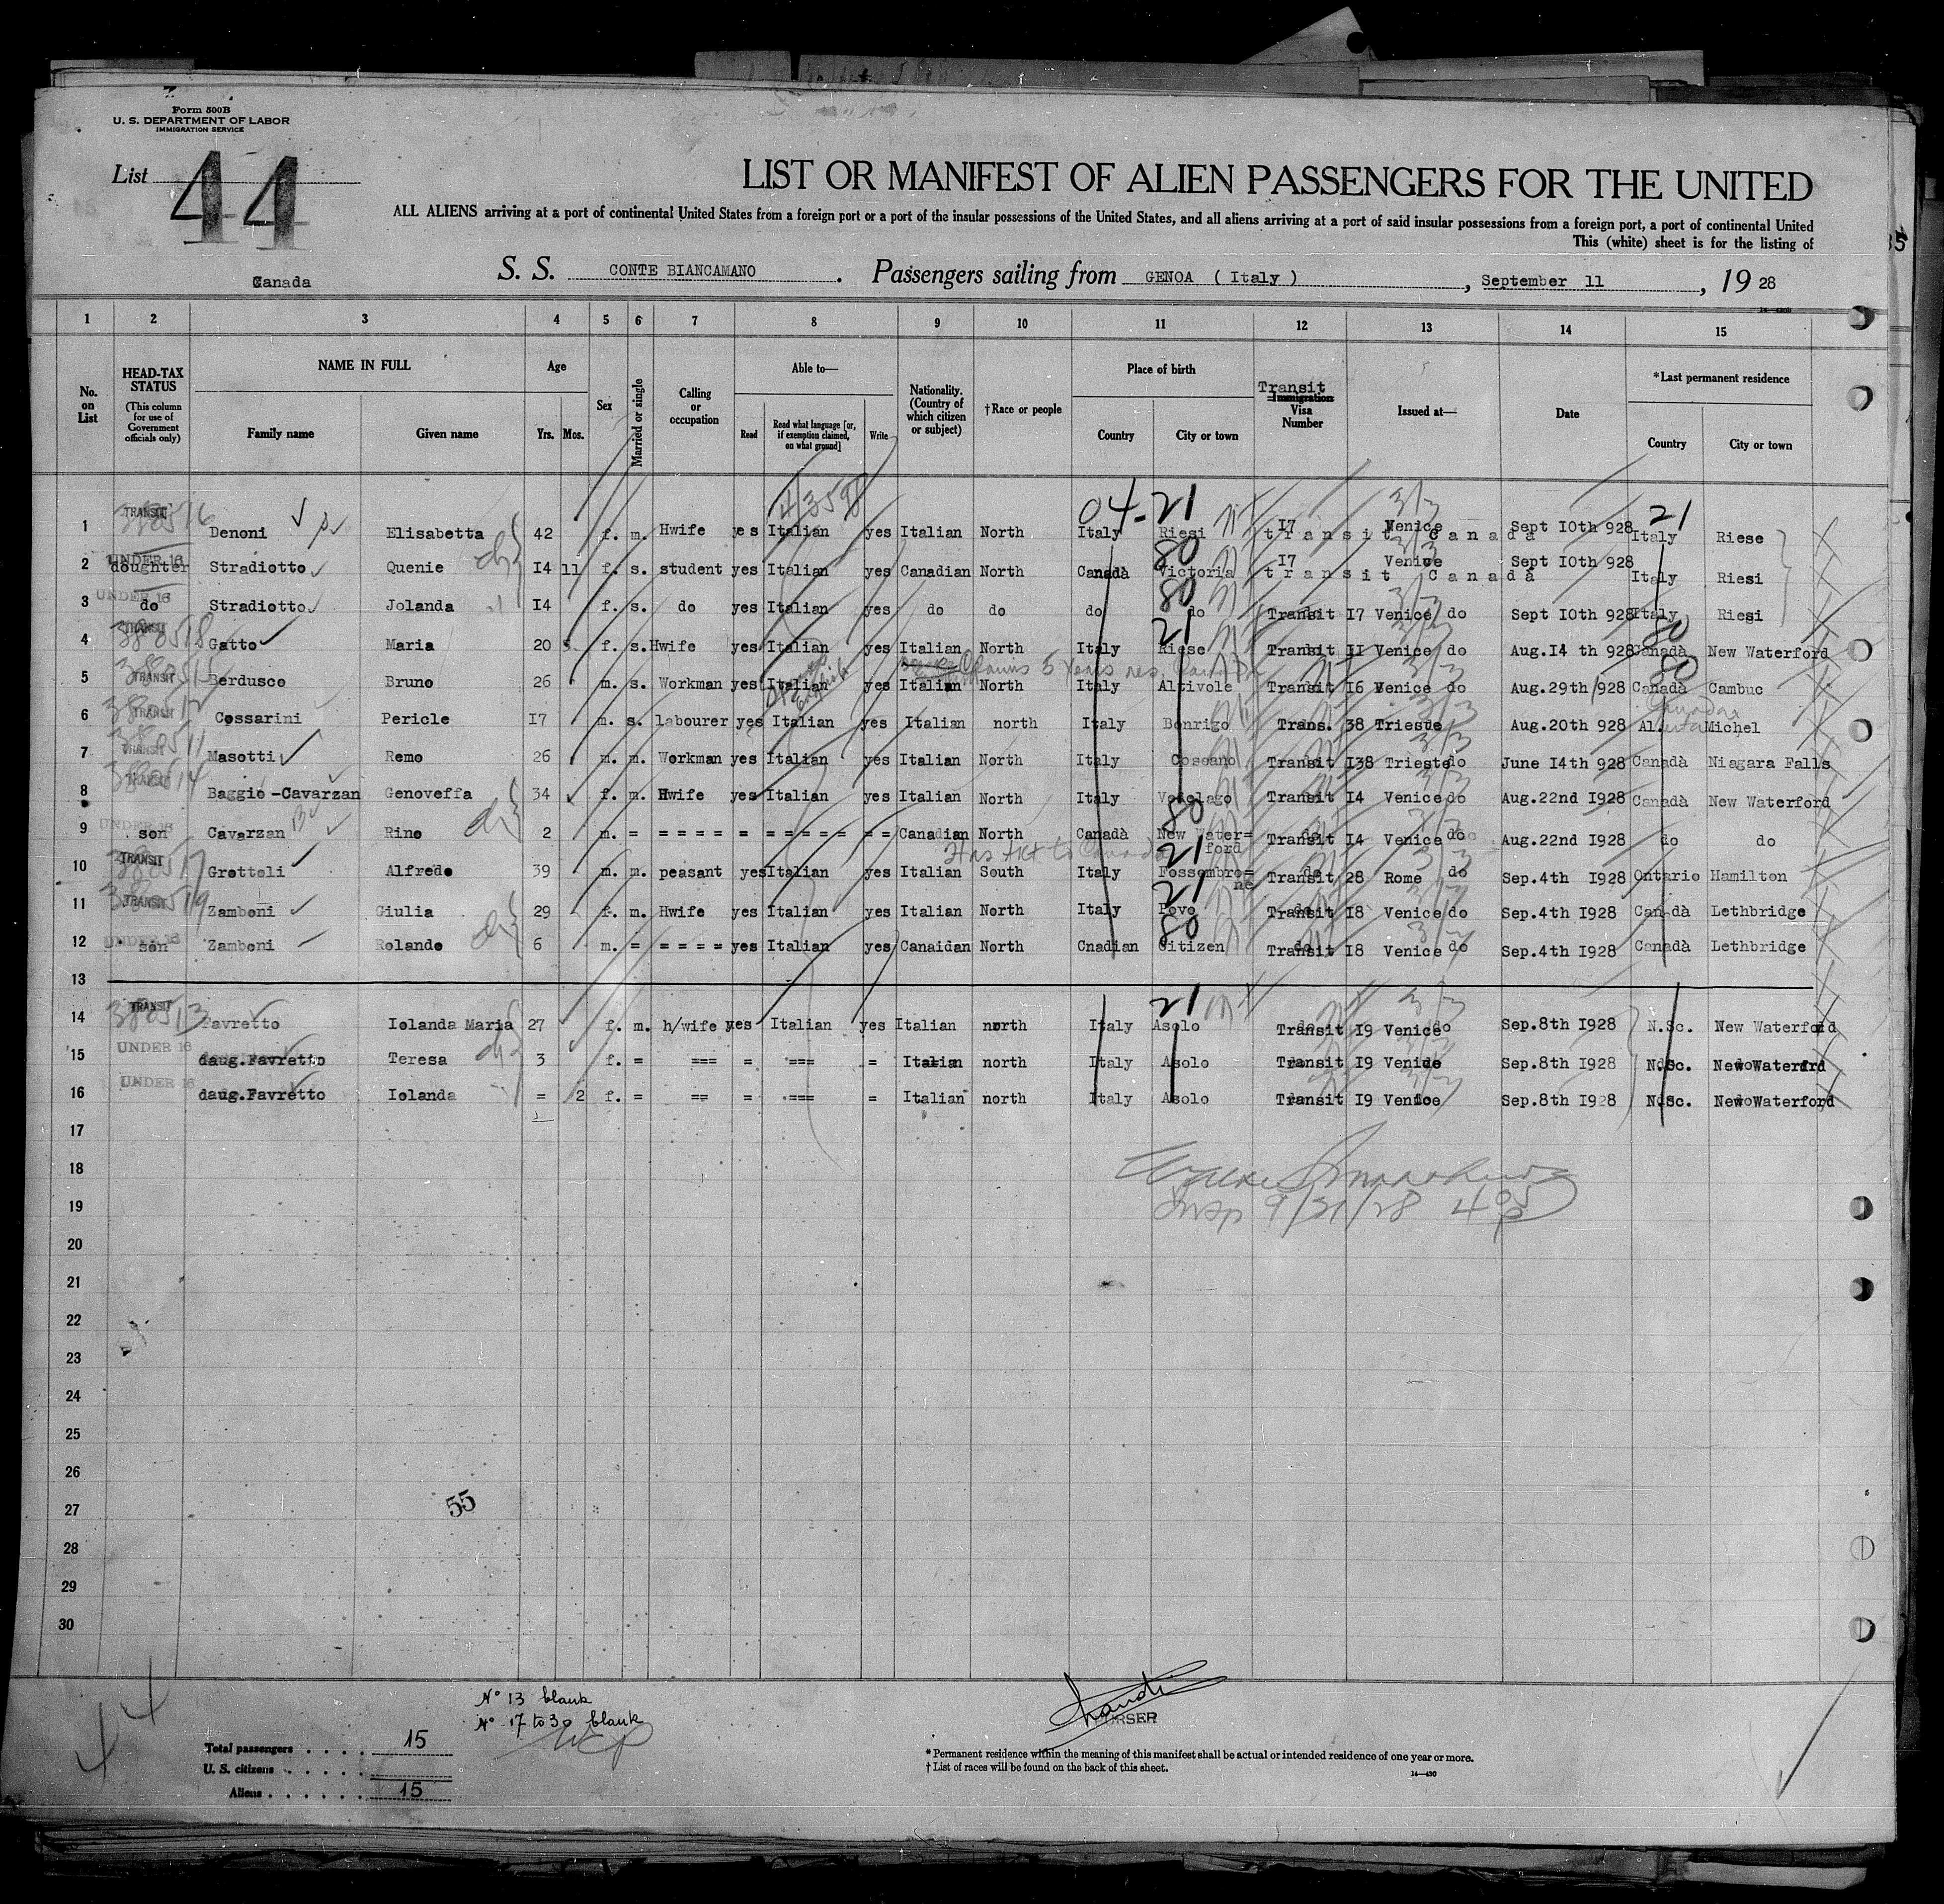 Form 500B
U. S. DEPARTMENT OF LABOR
IMMIGRATION SERVICE
List 44
LIST OR MANIFEST OF ALIEN PASSENGERS FOR THE UNITED
ALL ALIENS arriving at a port of continental United States from a foreign port or a port of the insular possessions of the United States, and all aliens arriving at a port of said insular possessions from a foreign port, a port of continental United
This (white) sheet is for the listing of
Canada
S. S. CONTE BIANCAMANO. Passengers sailing from GENOA ( Italy ), September 11, 19 28
1 2 3 4 5 6 7 8 9 10 11 12 13 14 15
No. on List
HEAD-TAX STATUS
(This column for use of Government officials only)
NAME IN FULL
Family name Given name
Age
Yrs. Mos.
Sex
Married or single
Calling or occupation
Able to—
Read
Read what language [or, if exemption claimed, on what ground]
Write
Nationality. (Country of which citizen or subject)
†Race or people
Place of birth
Country City or town
Transit
Immigration
Visa Number
Issued at—
Date
*Last permanent residence
Country City or town
1 TRANSIT Denoni Elisabetta 42 f. m. Hwife yes Italian yes Italian North Italy Riesi I7 Venice transit Canada Sept IOth 928 Italy Riese
2 UNDER 16 doughter Stradiotto Quenie I4 11 f. s. student yes Italian yes Canadian North Canadà Victoria I7 Venice transit Canadà Sept IOth 928 Italy Riesi
3 UNDER 16 do Stradiotto Jolanda I4 f. s. do yes Italian yes do do do do Transit I7 Venice do Sept IOth 928 Italy Riesi
4 TRANSIT Gatto Maria 20 5 f. s. Hwife yes Italian yes Italian North Italy Riese Transit II Venice do Aug.I4 th 928 Canadà New Waterford
5 TRANSIT Berdusco Bruno 26 m. s. Workman yes Italian yes Italian North Italy Altivole Transit I6 Venice do Aug.29th 928 Canadà Cambuc
6 TRANSIT Cossarini Pericle I7 m. s. labourer yes Italian yes Italian north Italy Bonrigo Trans. 38 Trieste Aug.20th 928 Alberta Michel
7 TRANSIT Masotti Remo 26 m. m. Workman yes Italian yes Italian North Italy Coseano Transit I38 Trieste do June I4th 928 Canadà Niagara Falls
8 TRANSIT Baggio-Cavarzan Genoveffa 34 f. m. Hwife yes Italian yes Italian North Italy Transit I4 Venice do Aug.22nd I928 Canadà New Waterford
9 UNDER 16 son Cavarzan Rino 2 m. = = = = = = = = = = = = = Canadian North Canadà New Water=ford Transit I4 Venice do Aug.22nd I928 do do
10 TRANSIT Grottoli Alfredo 39 m. m. peasant yes Italian yes Italian South Italy Fossombro=ne Transit 28 Rome do Sep.4th I928 Ontario Hamilton
11 TRANSIT Zamboni Giulia 29 f. m. Hwife yes Italian yes Italian North Italy Povo Transit I8 Venice do Sep.4th I928 Canadà Lethbridge
12 UNDER 16 son Zamboni Rolando 6 m. = = = = = yes Italian yes Canaidan North Cnadian Citizen Transit I8 Venice do Sep.4th I928 Canadà Lethbridge
13
14 TRANSIT Favretto Iolanda Maria 27 f. m. h/wife yes Italian yes Italian north Italy Asolo Transit I9 Venice do Sep.8th I928 N.Sc. New Waterford
15 UNDER 16 daug.Favretto Teresa 3 f. = === = === = Italian north Italy Asolo Transit I9 Venice Sep.8th I928 N.Sc. New Waterfrd
16 UNDER 16 daug.Favretto Iolanda = 2 f. = == = === = Italian north Italy Asolo Transit I9 Venice Sep.8th I928 N.Sc. New Waterford
17
18
19
Insp 9/21/28
20
21
22
23
24
25
26
27
55
28
29
30
44
Nº 13 blank
Nº 17 to 30 blank
PURSER
Total passengers . . . . 15
U. S. citizens . . . . . .
Aliens . . . . . . 15
* Permanent residence within the meaning of this manifest shall be actual or intended residence of one year or more.
† List of races will be found on the back of this sheet.
14—430